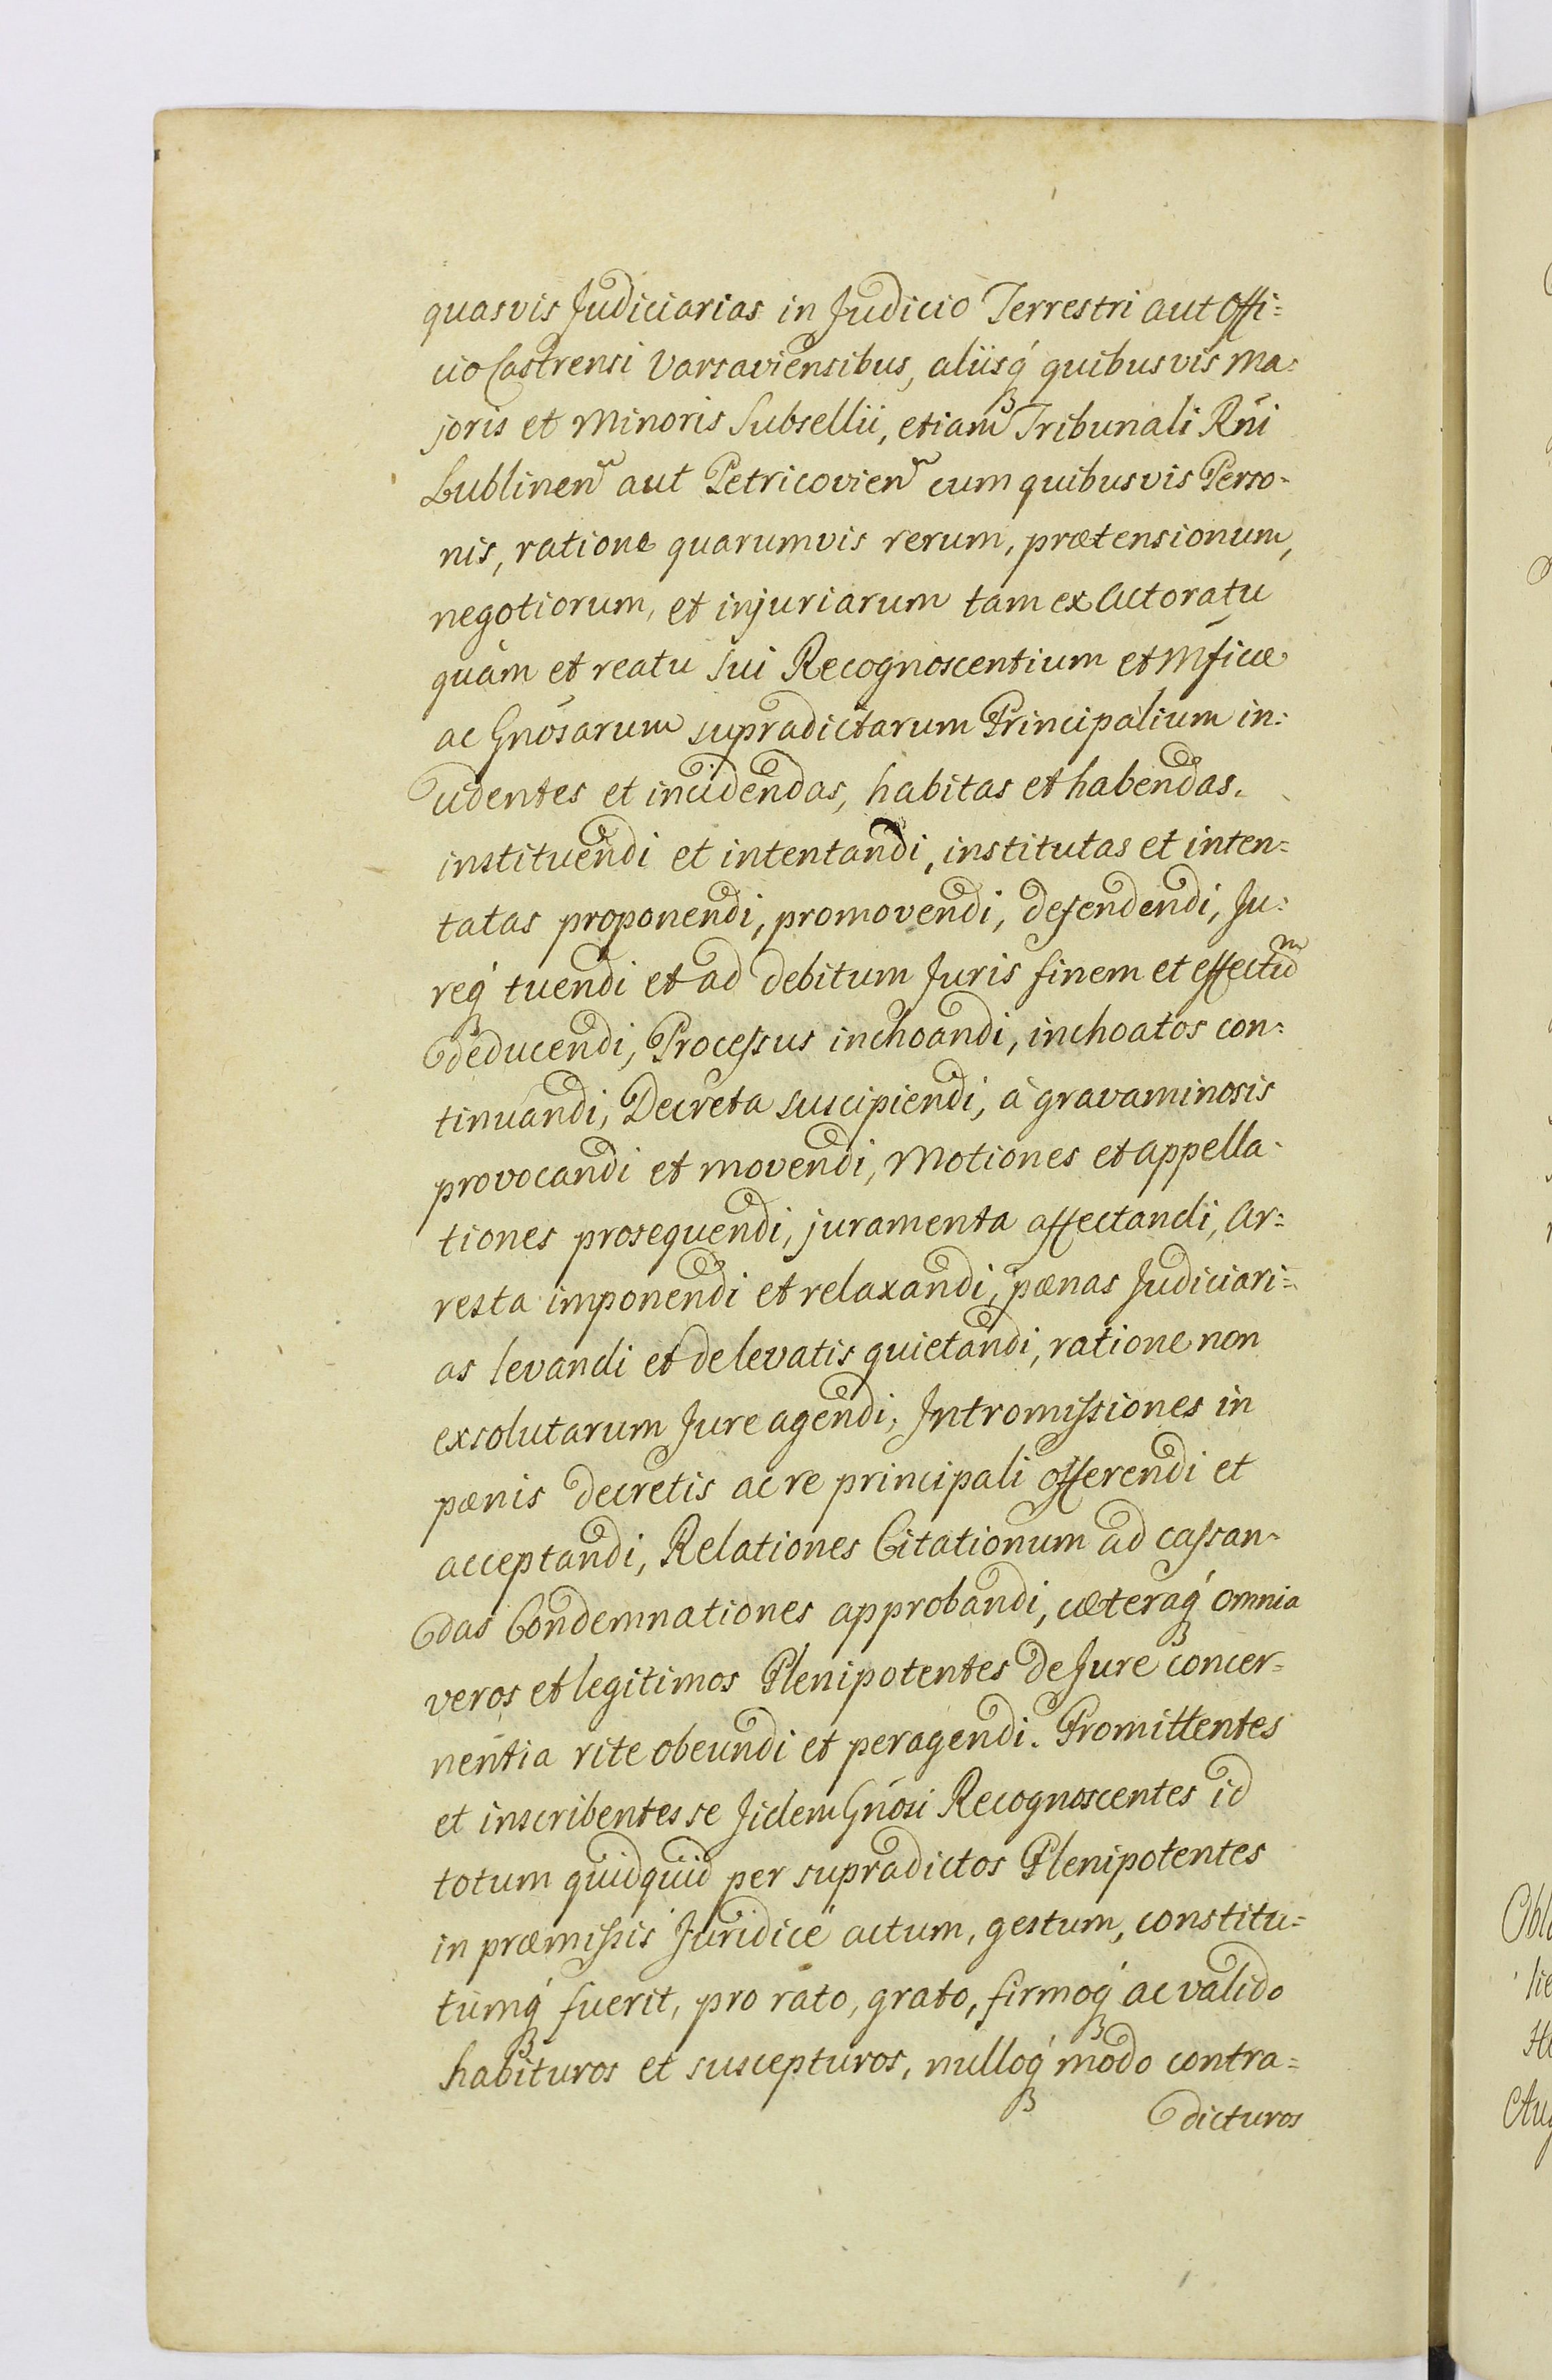 quasvis Judiciarias in Judicio Terrestri aut Offi=
cio Castrensi Varsaviensibus, aliisq́ꝫ quibusvis Ma=
joris et Minoris Subsellii, etiam Tribunali Rn̄i
Lublinen̄ aut Petricovien̄ cum quibusvis Perso=
nis, ratione quarumvis rerum, prætensionum,
negotiorum, et injuriarum tam ex Actoratu
quàm et reatu sui Recognoscentium et Mficæ
ac Gnōsarum supradictarum Principalium in=
cidentes et incidendas, habitas et habendas.
instituendi et intentandi, institutas et inten=
tatas proponendi, promovendi, defendendi, Ju=
req́ꝫ tuendi et ad debitum Juris finem et effectum
deducendi, Processus inchoandi, inchoatos con=
tinuandi, Decreta suscipiendi, à gravaminosis
provocandi et movendi, Motiones et appella=
tiones prosequendi, juramenta affectandi, Ar=
resta imponendi et relaxandi, pænas Judiciari=
as levandi et de levatis quietandi, ratione non
exsolutarum Jure agendi, Intromissiones in
pænis decretis ac re principali offerendi et
acceptandi, Relationes Citationum ad cassan=
das Condemnationes approbandi, cæteraq́ꝫ omnia
veros et legitimos Plenipotentes de Jure concer=
nentia rite obeundi et peragendi. Promittentes
et inscribentes se Jidem Gnōsi Recognoscentes id
totum quidquid per supradictos Plenipotentes
in præmissis Juridicè actum, gestum, constitu=
tumq́ꝫ fuerit, pro rato, grato, firmoq́ꝫ ac valido
habituros et suscepturos, nulloq́ꝫ modo contra=
dicturos